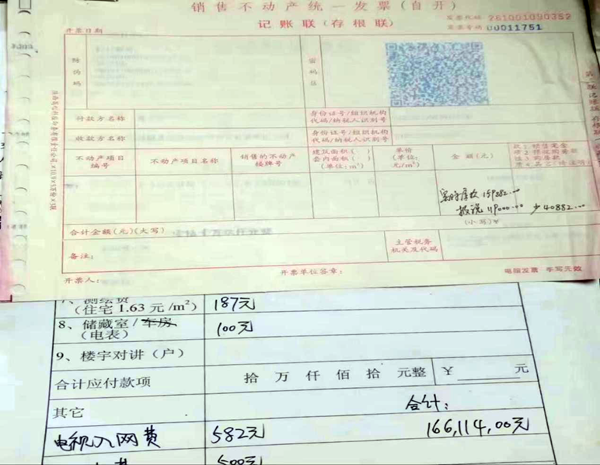 销售不动产统一发票(自开)
记账联(存根联)
开票日期
发票代码 261001090352
发票号码 00011751
付款方名称
身份证号/组织机构代码/纳税人识别号
收款方名称
身份证号/组织机构代码/纳税人识别号
不动产项目编号
不动产项目名称
销售的不动产楼牌号
建筑面积(
套内面积(
(单位:㎡)
单价
(单位:
元/㎡)
金额(元)
159882.00
119000.00 少40882.00
合计金额(元)(大写)
(小写)¥
备注:
主管税务机关及代码
开票人:
开票单位签章:
手写无效
7、测绘费
(住宅1.63元/m²)
187元
8、储藏室/车房
(电表)
100元
9、楼宇对讲(户)
合计应付款项
拾 万 仟 佰 拾 元整 ¥ 元
其它
合计:
电视入网费
582元
166,114,00元
500元